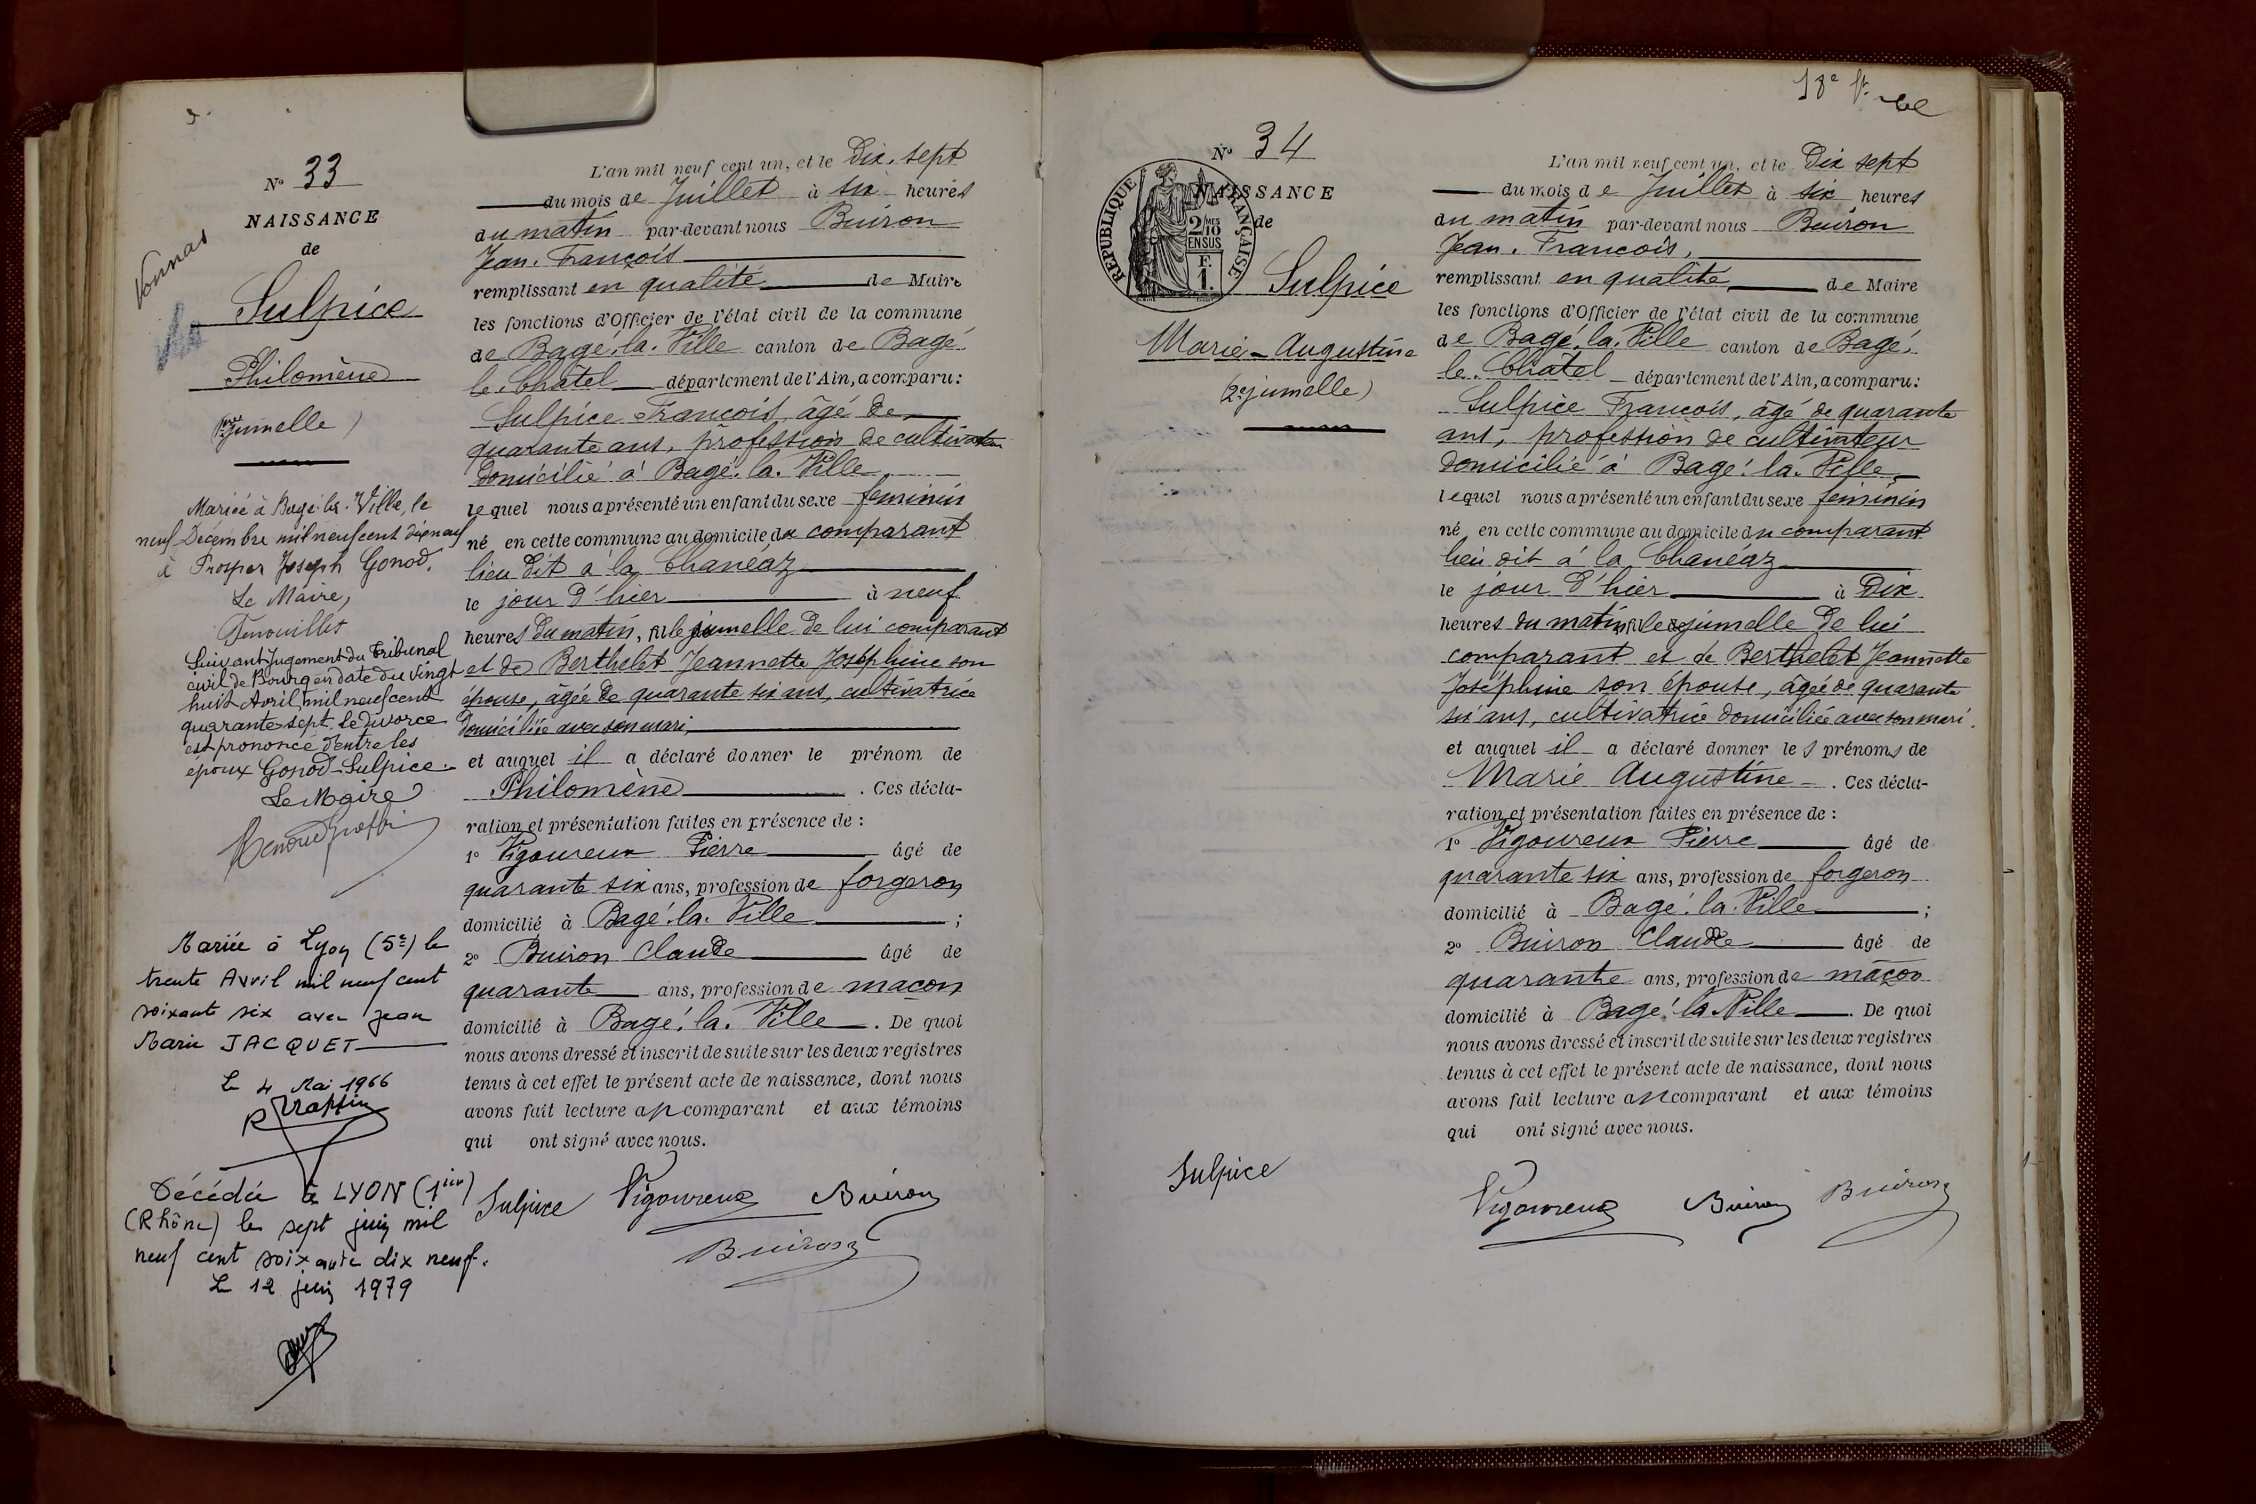 N° 33
NAISSANCE
de
Vonnas
Sulpice
Philomène
(1ère jumelle)
Mariée à Bagé-la-Ville, le
neuf Décembre mil neuf cent dix neuf
à Prosper Joseph Gonod.
Le Maire,
Suivant Jugement du Tribunal
civil de Bourg en date du vingt
huit Avril mil neuf cent
quarante-sept le divorce
est prononcé d'entre les
époux Gonod-Sulpice.
Le Maire
Mariée à Lyon (5e) le
trente Avril mil neuf cent
soixante six avec Jean
Marie JACQUET
Le 4 Mai 1966
Décédée à LYON (1ier)
(Rhône) le sept juin mil
neuf cent soixante dix neuf.
Le 12 juin 1979
L'an mil neuf cent un, et le Dix-sept
du mois de Juillet à six heures
du matin par-devant nous Buiron
Jean-François
remplissant en qualité de Maire
les fonctions d'Officier de l'état civil de la commune
de Bagé-la-Ville canton de Bagé-
le-Châtel département de l'Ain, a comparu:
Sulpice François, âgé de
quarante ans, profession de cultivateur
domicilié à Bagé-la-Ville
lequel nous a présenté un enfant du sexe féminin
né en cette commune au domicile du comparant
lieu dit à la Chanéaz
le jour d'hier à neuf
heures du matin, fille jumelle de lui comparant
et de Berthelet Jeannette Joséphine son
épouse, âgée de quarante six ans, cultivatrice
domiciliée avec son mari,
et auquel il a déclaré donner le prénom de
Philomène . Ces décla-
ration et présentation faites en présence de :
1° Vigoureux Pierre âgé de
quarante six ans, profession de forgeron
domicilié à Bagé-la-Ville ;
2° Buiron Claude âgé de
quarante ans, profession de maçon
domicilié à Bagé-la-Ville . De quoi
nous avons dressé et inscrit de suite sur les deux registres
tenus à cet effet le présent acte de naissance, dont nous
avons fait lecture au comparant et aux témoins
qui ont signé avec nous.
Sulpice Vigoureux Buiron
Buiron
18e
N° 34
NAISSANCE
de
RÉPUBLIQUE FRANÇAISE
2 MES
10
EN SUS
F.
1.
Sulpice
Marie-Augustine
(2e jumelle)
L'an mil neuf cent un, et le Dix sept
du mois de Juillet à six heures
du matin par-devant nous Buiron
Jean-François,
remplissant en qualité de Maire
les fonctions d'Officier de l'état civil de la commune
de Bagé-la-Ville canton de Bagé-
le-Châtel département de l'Ain, a comparu:
Sulpice François, âgé de quarante
ans, profession de cultivateur
domicilié à Bagé-la-Ville,
lequel nous a présenté un enfant du sexe féminin
né en cette commune au domicile du comparant
lieu dit à la Chanéaz
le jour d'hier à Dix
heures du matin, fille jumelle de lui
comparant et de Berthelet Jeannette
Joséphine son épouse, âgée de quarante
six ans, cultivatrice domiciliée avec son mari.
et auquel il a déclaré donner les prénoms de
Marie Augustine . Ces décla-
ration et présentation faites en présence de :
1° Vigoureux Pierre âgé de
quarante six ans, profession de forgeron
domicilié à Bagé-la-Ville ;
2° Buiron Claude âgé de
quarante ans, profession de maçon
domicilié à Bagé-la-Ville . De quoi
nous avons dressé et inscrit de suite sur les deux registres
tenus à cet effet le présent acte de naissance, dont nous
avons fait lecture au comparant et aux témoins
qui ont signé avec nous.
Sulpice
Vigoureux Buiron Buiron